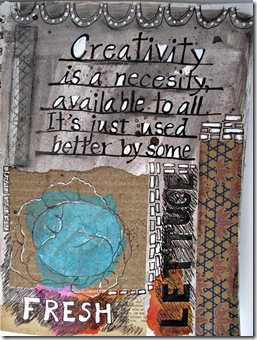 Creativity
is a necesity,
available to all
It's just used
better by some
LETTUCE
FRESH